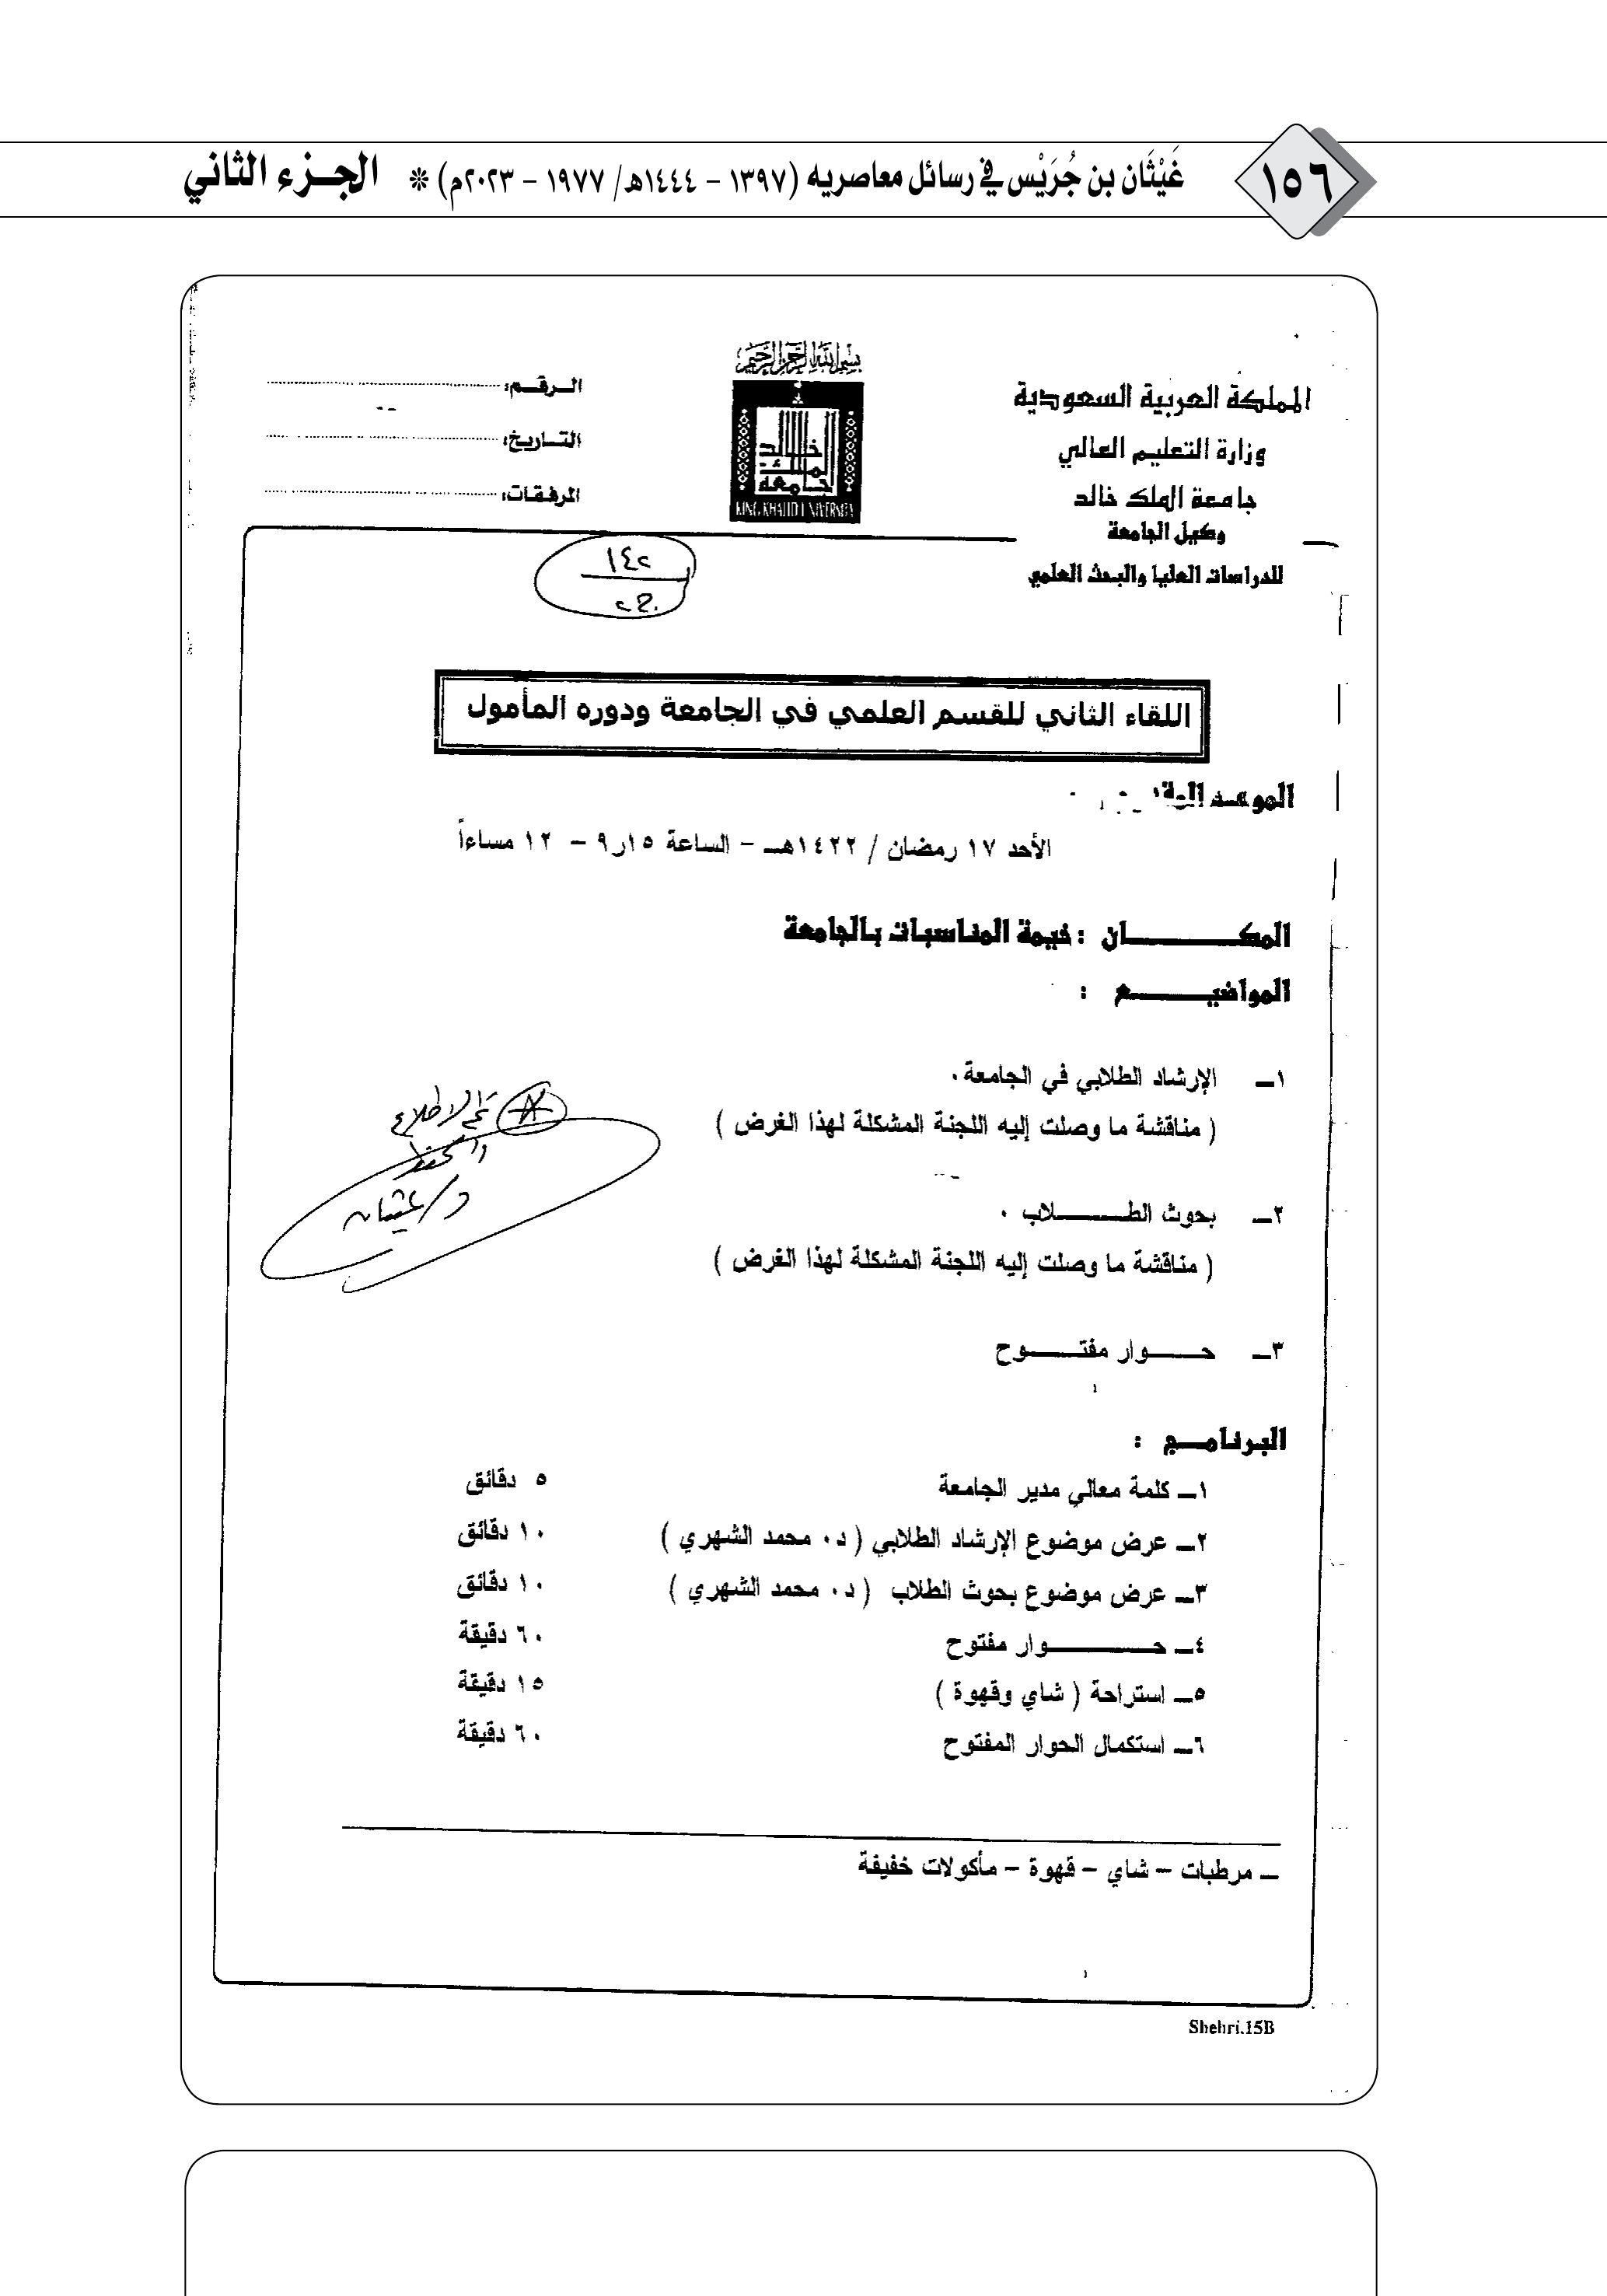 ١٥٦
غَيْثَان بن جُرَيْس في رسائل معاصريه (١٣٩٧ – ١٤٤٤هـ/ ١٩٧٧ – ٢٠٢٣م) * الجزء الثاني
بسم الله الرحمن الرحيم
المملكة العربية السعودية
وزارة التعليم العالي
جامعة الملك خالد
وكيل الجامعة
للدراسات العليا والبحث العلمي
جامعة الملك خالد
KING KHALID UNIVERSITY
الرقم:
التاريخ:
المرفقات:
اللقاء الثاني للقسم العلمي في الجامعة ودوره المأمول
الموعد
الأحد ١٧ رمضان / ١٤٢٢هـ – الساعة ١٥ر٩ – ١٢ مساءاً
المكـــان : خيمة المناسبات بالجامعة
المواضيـــع :
١ــ الإرشاد الطلابي في الجامعة .
( مناقشة ما وصلت إليه اللجنة المشكلة لهذا الغرض )
تم الاطلاع
والحفظ
د/ غيثان
٢ــ بحوث الطـــلاب .
( مناقشة ما وصلت إليه اللجنة المشكلة لهذا الغرض )
٣ــ حـــوار مفتـــوح
البرنامـــج :
١ــ كلمة معالي مدير الجامعة ٥ دقائق
٢ــ عرض موضوع الإرشاد الطلابي ( د. محمد الشهري ) ١٠ دقائق
٣ــ عرض موضوع بحوث الطلاب ( د. محمد الشهري ) ١٠ دقائق
٤ــ حـــوار مفتوح ٦٠ دقيقة
٥ــ استراحة ( شاي وقهوة ) ١٥ دقيقة
٦ــ استكمال الحوار المفتوح ٦٠ دقيقة
ــ مرطبات – شاي – قهوة – مأكولات خفيفة
Shehri.15B